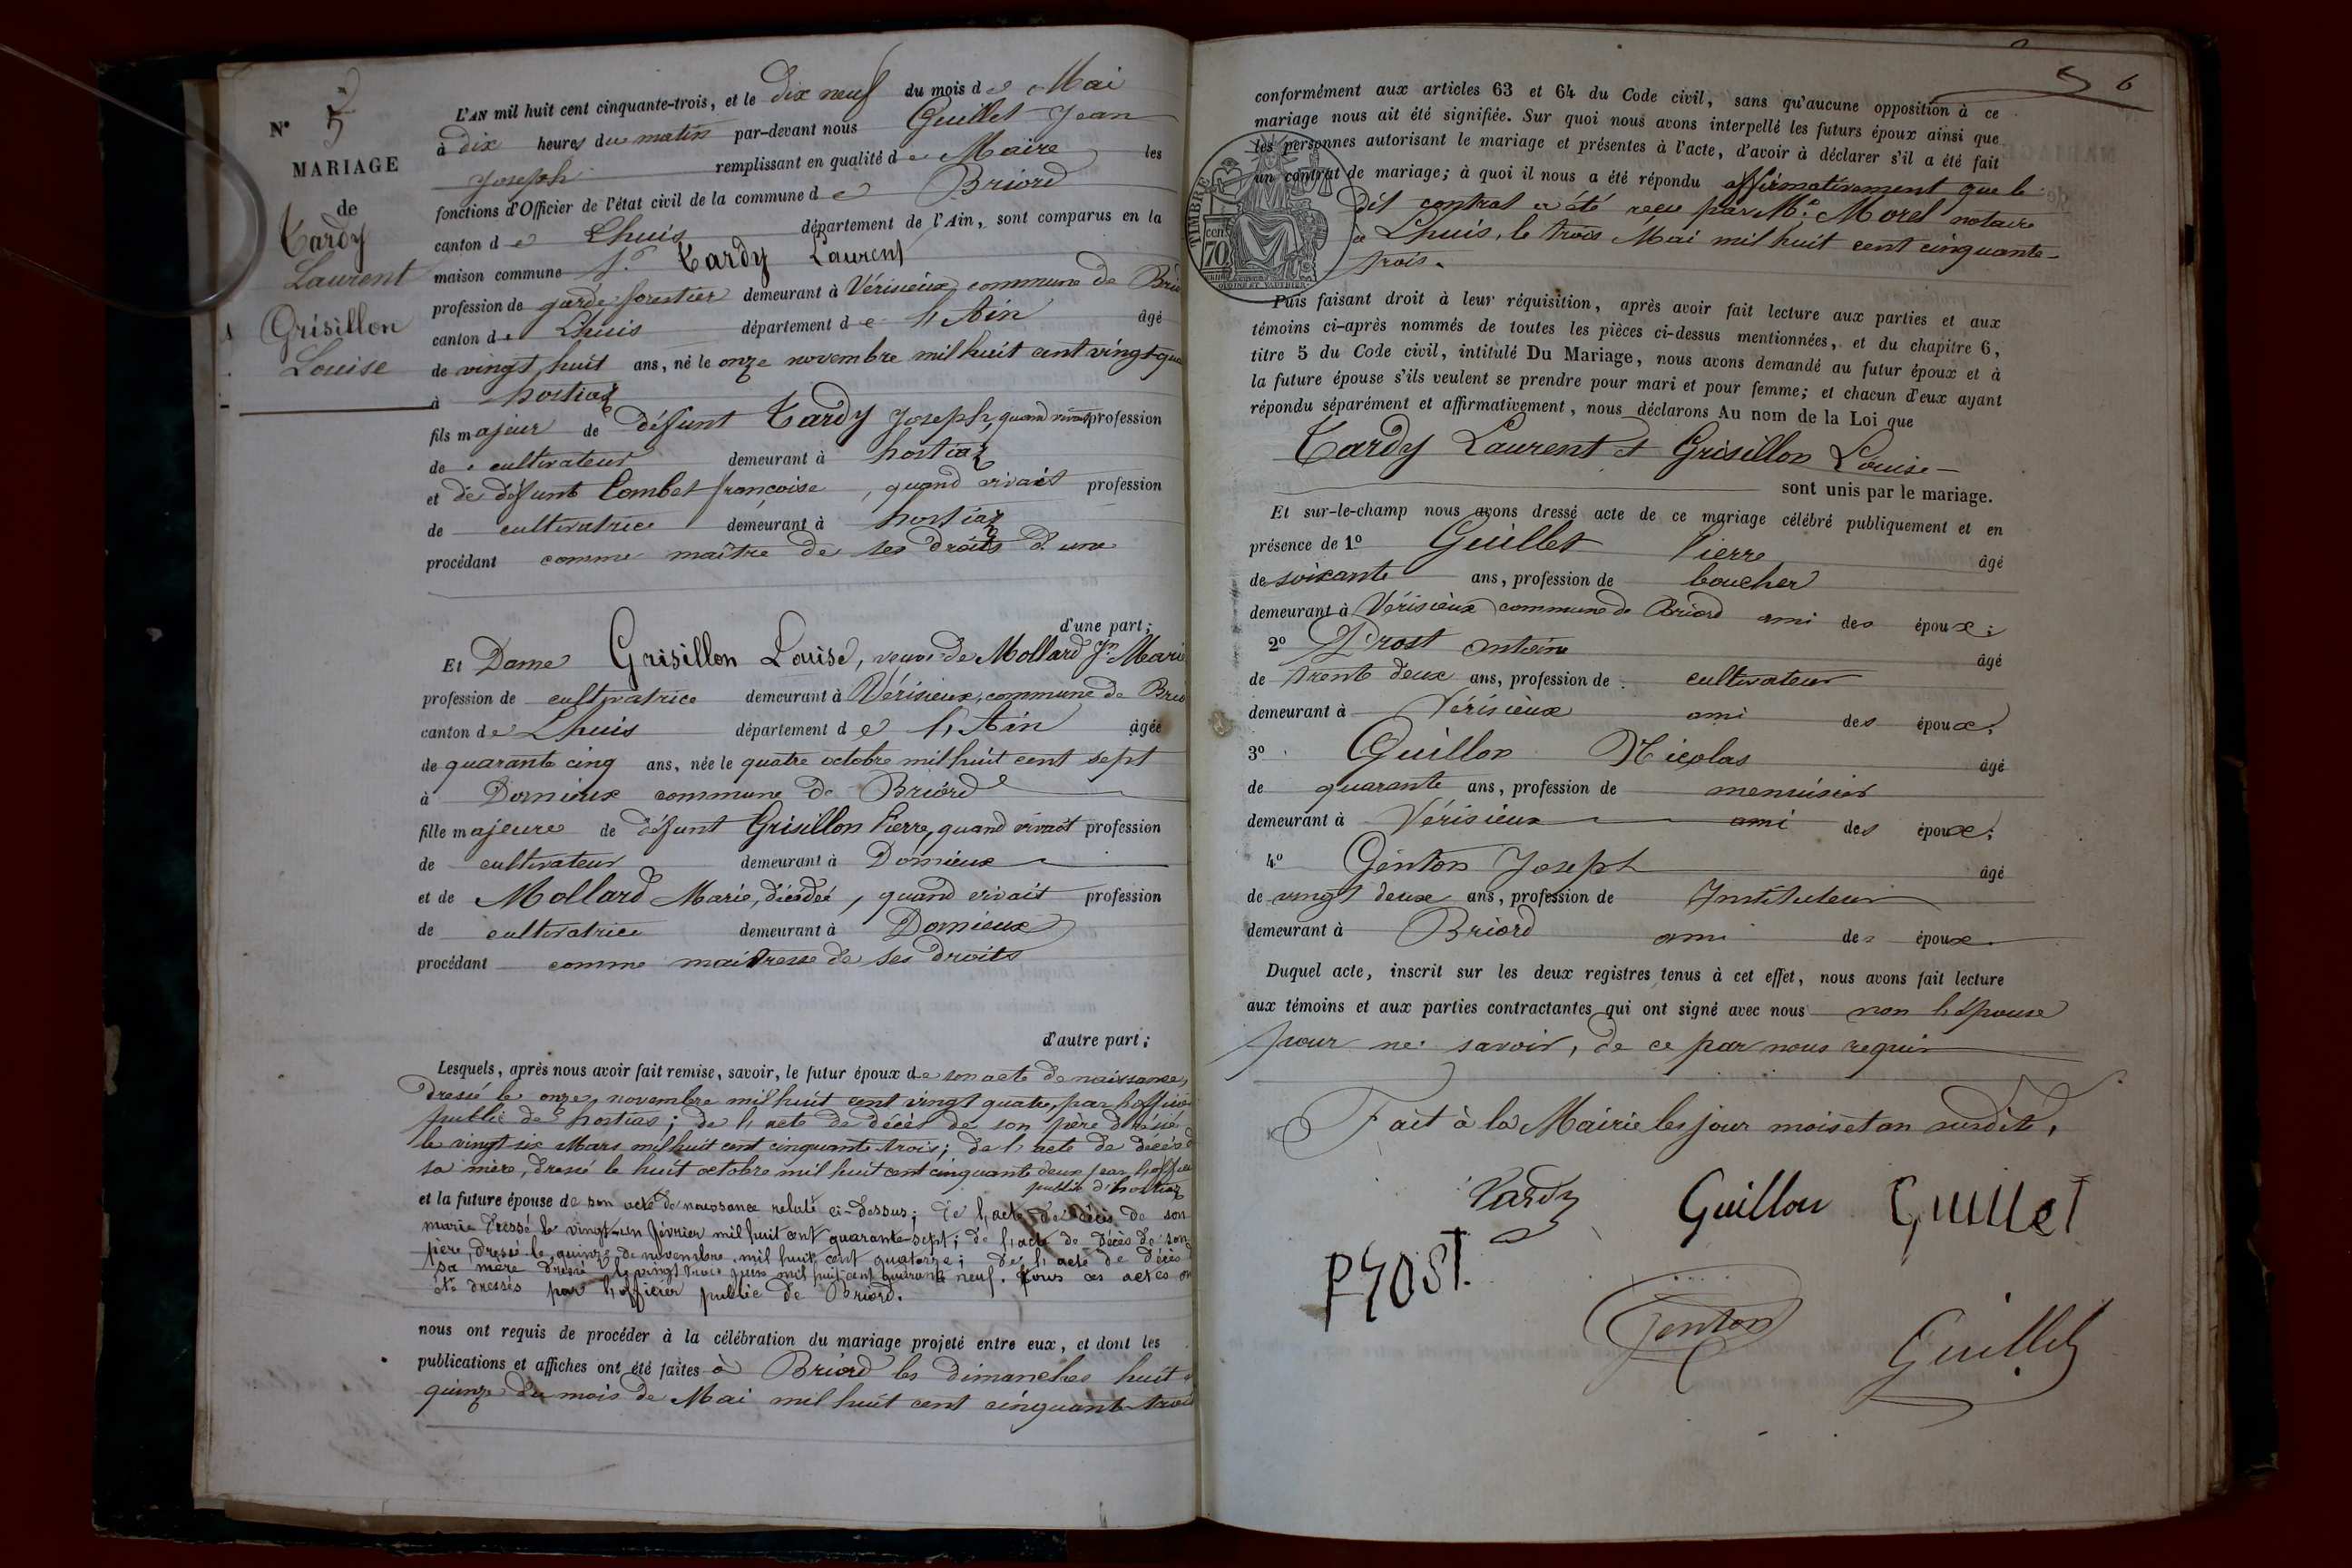 N° 5
MARIAGE
de
Tardy
Laurent
&
Grisillon
Louise
L'AN mil huit cent cinquante-trois, et le dix neuf du mois de Mai
à dix heures du matin par-devant nous Guillet Jean
Joseph remplissant en qualité de Maire les
fonctions d'Officier de l'état civil de la commune de Briord
canton de Lhuis département de l'Ain, sont comparus en la
maison commune 1° Tardy Laurent
profession de garde forestier demeurant à Vérisieux commune de Brio
canton de Lhuis département de l'Ain âgé
de vingt huit ans, né le onze novembre mil huit cent vingt-qua
à hostiaz
fils majeur de défunt Tardy Joseph, quand vivait profession
de cultivateur demeurant à hostiaz
et de défunte Combet françoise, quand vivait profession
de cultivatrice demeurant à hostiaz
procédant comme maître de ses droits d'une
d'une part;
Et Dame Grisillon Louise, veuve de Mollard Jn Marie
profession de cultivatrice demeurant à Vérisieux, commune de Brio
canton de Lhuis département de l'Ain âgée
de quarante cinq ans, née le quatre octobre mil huit cent sept
à Dornieux commune de Briord
fille majeure de défunt Grisillon Pierre, quand vivait profession
de cultivateur demeurant à Dornieux
et de Mollard Marie, décédée, quand vivait profession
de cultivatrice demeurant à Dornieux
procédant comme maitresse de ses droits
d'autre part;
Lesquels, après nous avoir fait remise, savoir, le futur époux de son acte de naissance,
dressé le onze novembre mil huit cent vingt quatre, par l'officier
public de hostias; de l'acte de décès de son père dressé
le vingt six Mars mil huit cent cinquante trois; de l'acte de décès d
sa mère, dressé le huit octobre mil huit cent cinquante deux par l'officier
public d'hostiaz
et la future épouse de son acte de naissance relaté ci-dessus; de l'acte de décès de son
marie dressé le vingt-un février mil huit cent quarante-sept; de l'acte de décès de son
père, dressé le quinze de novembre mil huit cent quatorze; de l'acte de décès d
sa mère dressé le vingt trois juin mil huit cent quarante neuf. Tous ces actes on
été dressés par l'officier public de Briord.
nous ont requis de procéder à la célébration du mariage projeté entre eux, et dont les
publications et affiches ont été faites à Briord les dimanches huit &
quinze du mois de Mai mil huit cent cinquante-trois
6
conformément aux articles 63 et 64 du Code civil, sans qu'aucune opposition à ce
mariage nous ait été signifiée. Sur quoi nous avons interpellé les futurs époux ainsi que
les personnes autorisant le mariage et présentes à l'acte, d'avoir à déclarer s'il a été fait
un contrat de mariage; à quoi il nous a été répondu affirmativement que le
dit contrat a été reçu par Me Morel notaire
à Lhuis, le trois Mai mil huit cent cinquante-
trois.
TIMBRE
cen
70
Puis faisant droit à leur réquisition, après avoir fait lecture aux parties et aux
témoins ci-après nommés de toutes les pièces ci-dessus mentionnées, et du chapitre 6,
titre 5 du Code civil, intitulé Du Mariage, nous avons demandé au futur époux et à
la future épouse s'ils veulent se prendre pour mari et pour femme; et chacun d'eux ayant
répondu séparément et affirmativement, nous déclarons Au nom de la Loi que
Tardy Laurent & Grisillon Louise
sont unis par le mariage.
Et sur-le-champ nous avons dressé acte de ce mariage célébré publiquement et en
présence de 1° Guillet Pierre âgé
de soixante ans, profession de boucher
demeurant à Vérisieux commune de Briord ami des époux;
2° Prost antoine âgé
de trente deux ans, profession de cultivateur
demeurant à Vérisieux ami des époux;
3° Guillon Nicolas âgé
de quarante ans, profession de menuisier
demeurant à Vérisieux ami des époux;
4° Genton Joseph âgé
de vingt deux ans, profession de Instituteur
demeurant à Briord ami des époux.
Duquel acte, inscrit sur les deux registres tenus à cet effet, nous avons fait lecture
aux témoins et aux parties contractantes qui ont signé avec nous non l'épouse
pour ne savoir, de ce par nous requis
Fait à la Mairie les jour mois et an susdits.
Tardy Guillon Guillet
Prost
Genton
Guillet